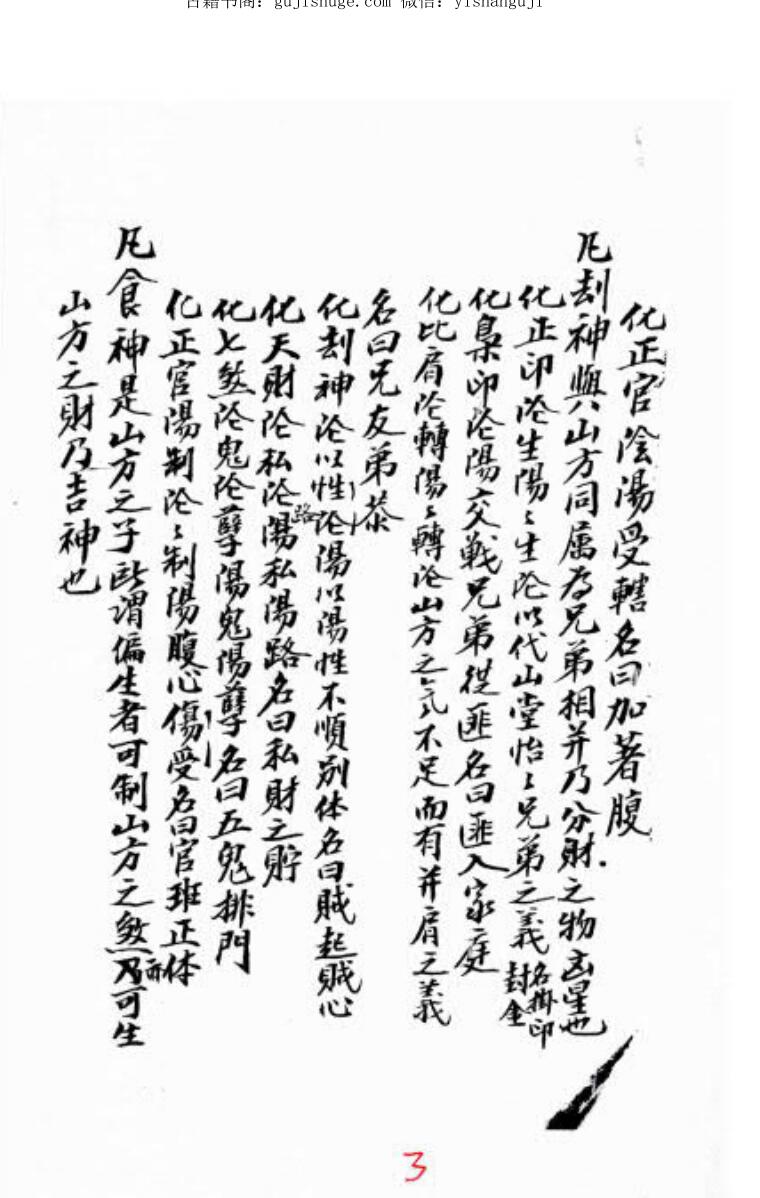 古籍书阁：gujishuge.com 微信：yishanguji
化正官陰陽受轄名曰加著腹
凡刦神與山方同属為兄弟相并乃分財之物凶星也
化正印陰生陽〻生陰以代山堂怡〻兄弟之義名掛印封金
化梟印陰陽交戰兄弟從匪名曰匪入家庭
化比肩陰轉陽〻轉陰山方之氣不足而有并肩之義
名曰兄友弟恭
化刦神陰以性陰陽以陽性不順别体名曰賊起賊心
化天財陰私陰路陽私陽路名曰私財之貯
化七煞陰鬼陰孽陽鬼陽孽名曰五鬼排門
化正官陽制陰〻制陽腹心傷受名曰官班正体
凡食神是山方之子此謂偏生者可制山方之煞亦可生
山方之財乃吉神也
3